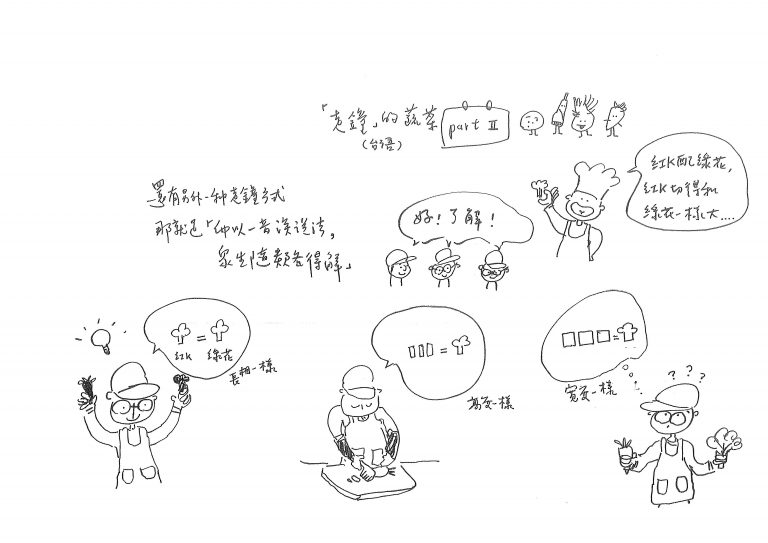 「走鐘」的蔬菜
(台語)
part II
紅K配綠花,
紅K切得和
綠花一樣大....
還有另外一種走鐘方式
那就是「佛以一音演說法,
眾生隨類各得解」
好!了解!
=
紅K 綠花
長相一樣
=
高度一樣
=
寬度一樣
? ? ?